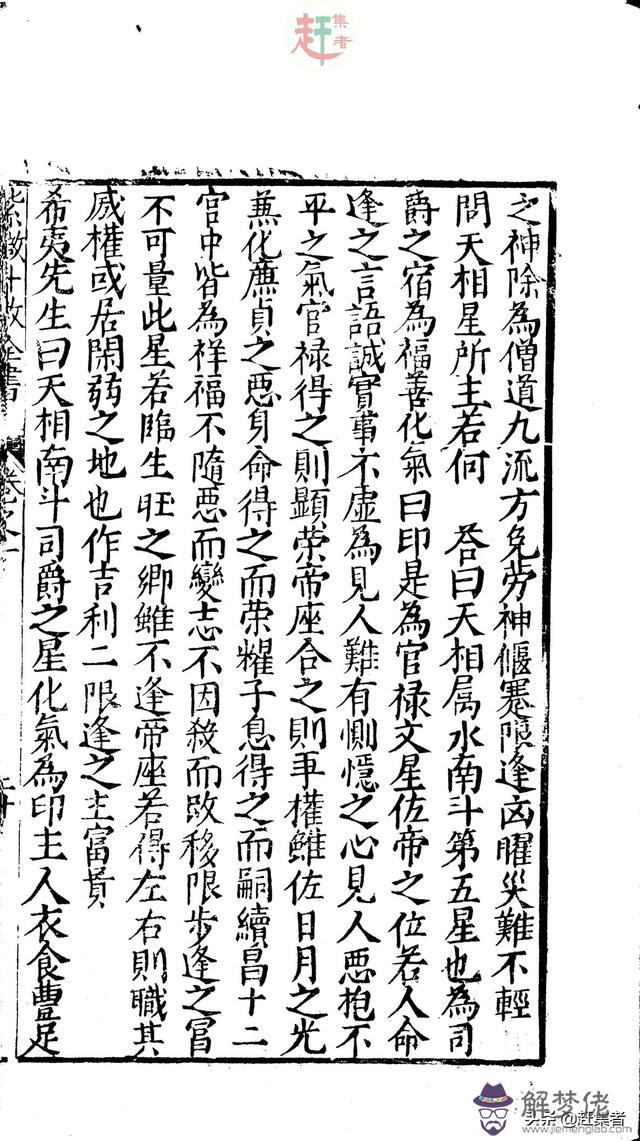 赶集者
之神除為僧道九流方免勞神偃蹇限逢凶曜災難不輕
問天相星所主若何　荅曰天相属水南斗第五星也為司
爵之宿為福善化氣曰印是為官禄文星佐帝之位若人命
逢之言語誠實事不虛為見人難有惻憶之心見人惡抱不
平之氣官禄得之則顯荣帝座合之則爭權雖佐日月之光
蕪化廉貞之惡身命得之而荣耀子息得之而嗣續昌十二
官中皆為祥福不隨惡而變志不因殺而改移限步逢之冨
不可量此星若臨生旺之鄉雖不逢帝座若得左右則職其
威權或居閑弱之地也作吉利二限逢之主富貴
希夷先生曰天相南斗司爵之星化氣為印主人衣食豊足
紫微斗数全書　卷之一
二十
解梦佬
www.jiemenglab.com
头条@赶集者